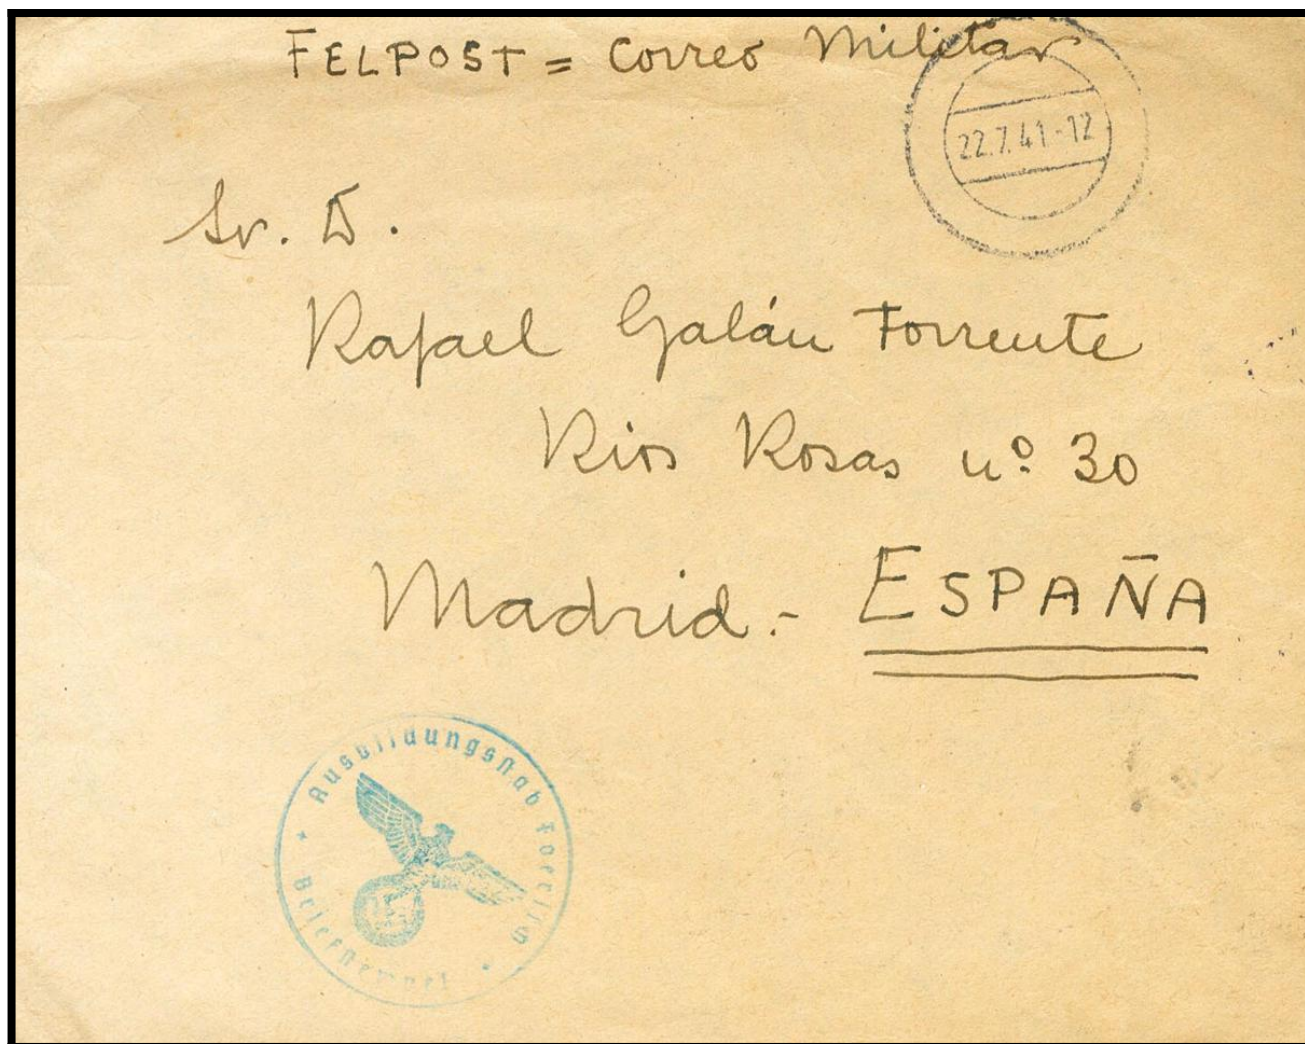 FELPOST = Correo Militar
22.7.41-12
Sr. D.
Rafael Galán Torrente
Rios Rosas nº 30
Madrid.- ESPAÑA
Ausbildungsstab
Briefstempel